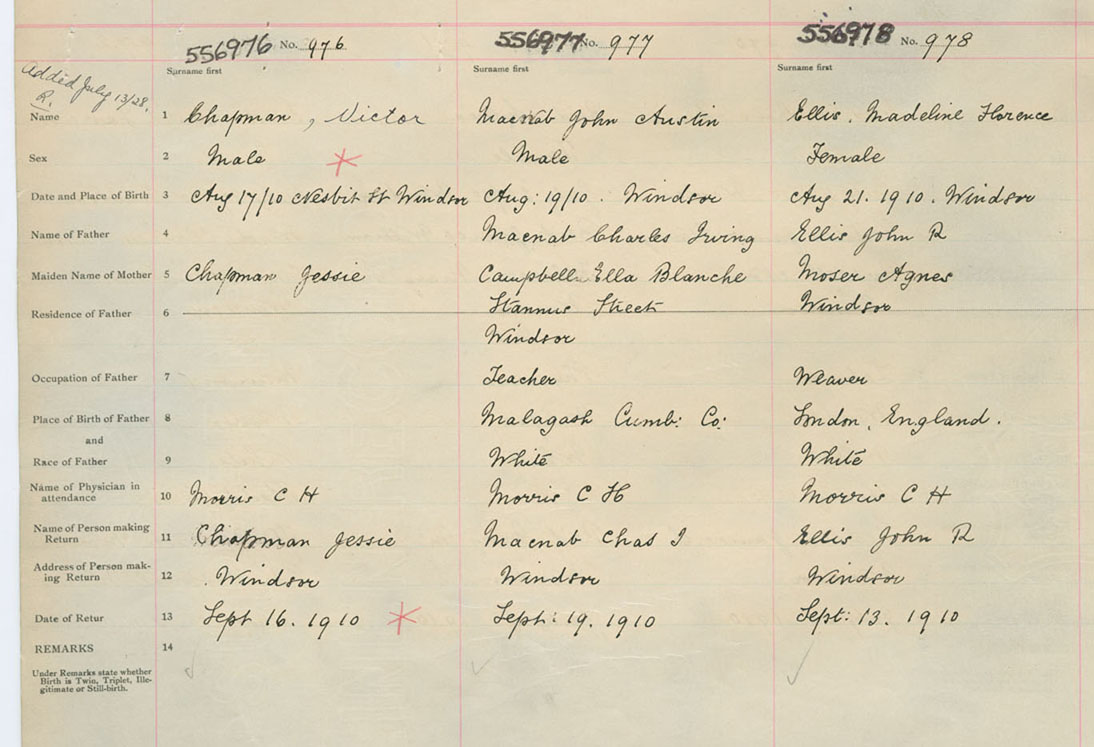 556976 No. 976 556977 No. 977 556978 No. 978
Surname first Surname first Surname first
Added July 13/28.
R.
Name 1 Chapman, Victor Macnab John Austin Ellis. Madeline Florence
Sex 2 Male Male Female
Date and Place of Birth 3 Aug 17/10 Nesbit St Windsor Aug: 19/10. Windsor Aug 21. 1910. Windsor
Name of Father 4 Macnab Charles Irving Ellis John R
Maiden Name of Mother 5 Chapman Jessie Campbell Ella Blanche Moser Agnes
Residence of Father 6 Stannus Street Windsor
Windsor
Occupation of Father 7 Teacher Weaver
Place of Birth of Father 8 Malagash Cumb: Co: London, England.
and
Race of Father 9 White White
Name of Physician in
attendance 10 Morris C H Morris C H Morris C H
Name of Person making
Return 11 Chapman Jessie Macnab Chas I Ellis John R
Address of Person mak-
ing Return 12 . Windsor Windsor Windsor
Date of Retur 13 Sept 16. 1910 Sept: 19. 1910 Sept: 13. 1910
REMARKS 14
Under Remarks state whether
Birth is Twin, Triplet, Ille-
gitimate or Still-birth.